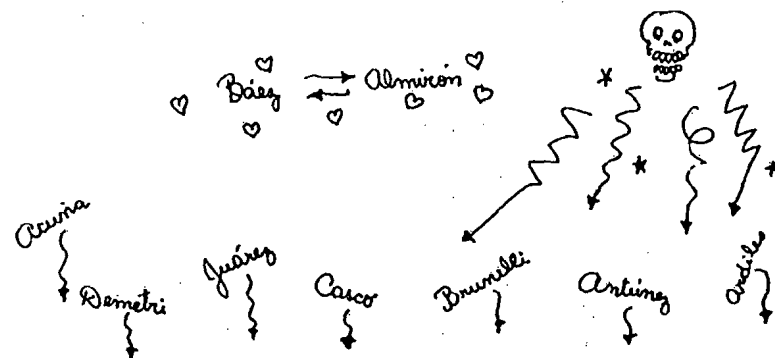 Báez Almirón
Acuña
Demetri
Juárez
Casco
Brunelli
Antúnez
Ardiles